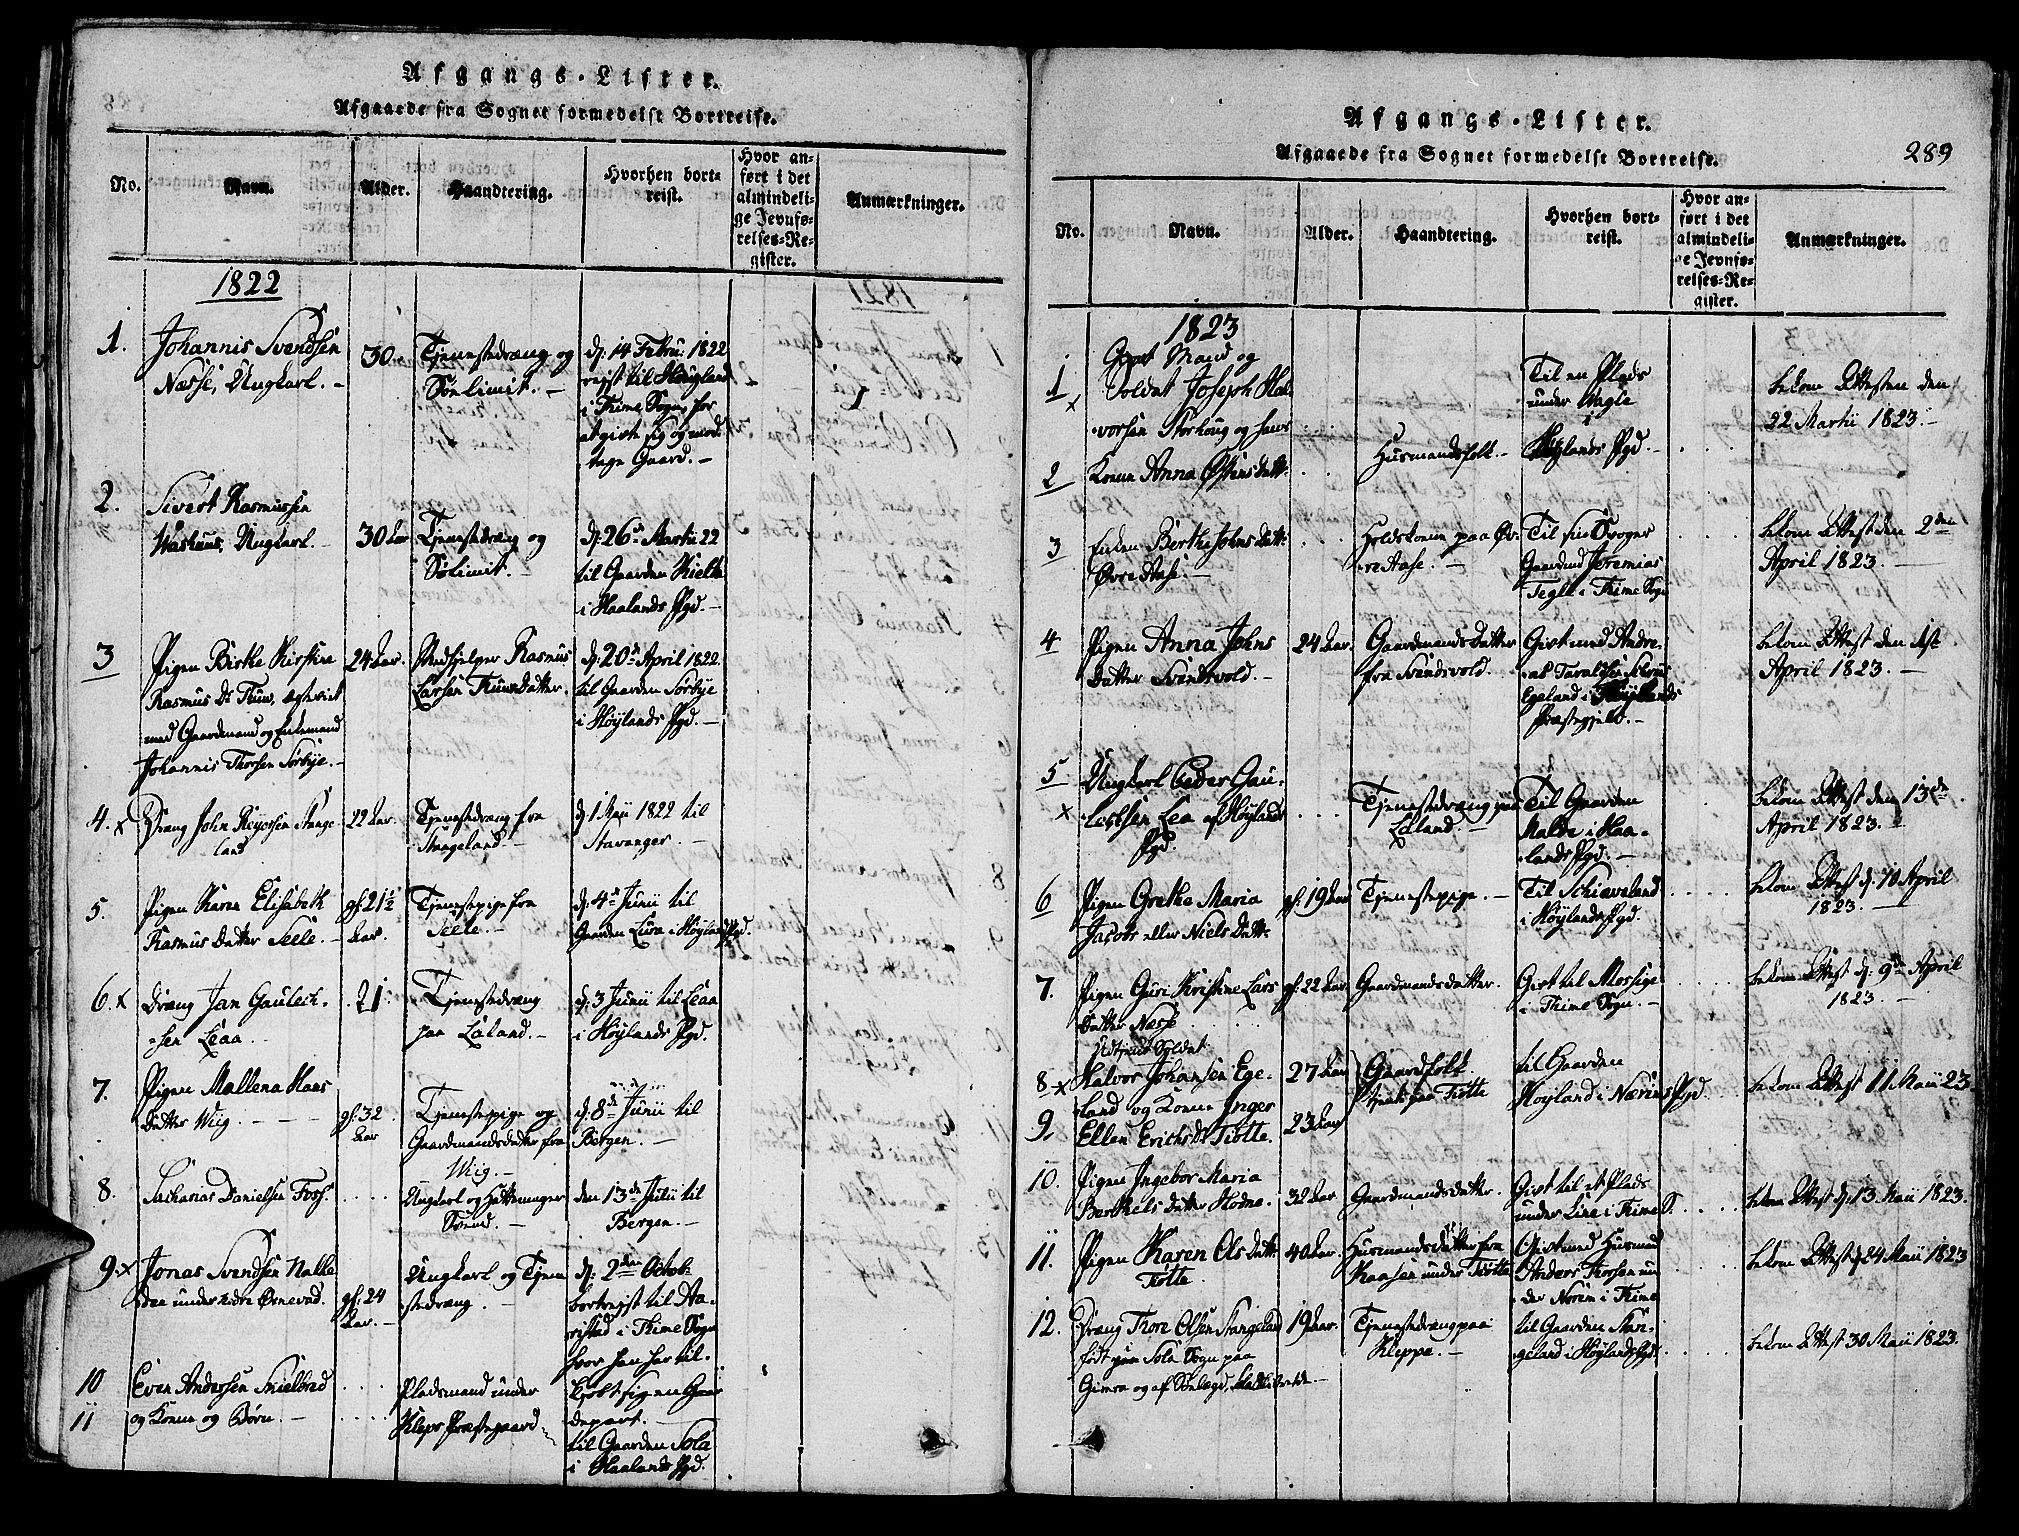 Afgangs-Lister.
Afgaaede fra Sognet formedelst Bortreise.
No.
Navn.
Alder.
Haandtering.
Hvorhen bort-
reist.
Hvor an-
ført i det
almindeli-
ge Jevnfø-
relses-Re-
gister.
Anmærkninger.
1822
1.
Johannis Svendsen
Næsse, Ungkarl. -
30.
Tjenestedræng og
Sølimit. -
d: 14 Febru: 1822
rejst til Hougland
i Thime Sogn, for
at givte sig og mod
tage Gaard. -
2.
Sivert Rasmussen
Ungkarl. -
30 Aar
Tjenestedræng og
Sølimit. -
d: 26de Martii 22
til Gaarden
i Haalands Pgd. -
3
Pigen Birthe Kirstine
Rasmus Dr Thuu, ægteviet
med Gaardmand og Enkemand
Johannis Thorsen Sørbye. -
24 Aar.
Medhjelper Rasmus
Larsen Thuus Datter.
d: 20de April 1822
til Gaarden Sørbye
i Høylands Pgd. -
4. x
Dræng John Reiersen Stange
land
22 Aar.
Tjenestedræng fra
Stangeland. -
d. 1 Maii 1822 til
Stavanger. -
5.
Pigen Karen Elisabeth
Rasmus Datter Seele. -
gl. 21½
Aar.
Tjenestepige fra
Seele. -
d. 4de Junii til
Gaarden Lura i Høylands Pgd.
6. x
Dræng Jan Gautech-
sen Leaa.
21.
Tjenestedræng
paa Laland. -
d: 3 Junii til Leaa
i Høylands Pgd.
7.
Pigen Mallena Hans
Datter Wiig. -
gl: 32
Aar
Tjenestepige og
Gaardmandsdatter fra
Wiig. -
d. 8de Junii til
Bergen. -
8.
Sacharias Danielsen Foss.
Ungkarl og
Svend. -
den 13de Julii til
Bergen. -
9. x
Jonas Svendsen
under nedre Ørnevad.
gl: 24
Aar. -
Ungkarl og Tjene
stedræng.
d: 2den Octob:
bortrejst til Aa-
restad i Thime Sogn
hvor han har til-
kjøbt sig en Gaar
depart. -
10
Even Andersen
11
og Konne og Børn. -
Pladsmand under
Klepp Præstegaard
til Gaarden Sola
i Haalands Pgd.
Afgangs-Lister.
Afgaaede fra Sognet formedelst Bortreise.
289
No.
Navn.
Alder.
Haandtering.
Hvorhen bort-
reist.
Hvor an-
ført i det
almindeli-
ge Jevnfø-
relses-Re-
gister.
Anmærkninger.
1823
1
x
Mand og
Soldat Joseph Hal-
vorsen Storhoug og hans
2
Konne Anna Østens Datt:
Husmandsfolk. -
Til en Plads
under Vagle
i
Høylands Pgd. -
bekom Attesten den
22 Martii 1823. -
3
Enken Berthe Johns Datt:
Øvre Aase. -
Holdskone paa Øv-
re Aase. -
Til sin Svoger
Gaardmd Jeremias
Tegle i Thime Sogn
bekom Attest den 2den
April 1823. -
4
Pigen Anna Johns
Datter Svendsvold. -
24 Aar.
Gaardmands Datter
fra Svendsvold.
Givt med Andre-
as Taraldsen
Egeland i Høylands
Præstegjeld. -
bekom Attest den 1st
April 1823. -
5
x
Ungkarl Peder Gau-
testsen Lea af Høylands
Pgd.
Tjenestedræng paa
Laland. -
Til Gaarden
Malde i Haa-
lands Pgd. -
bekom Attest den 13de
April 1823. -
6
Pigen Grethe Maria
Jacobs eller Niels Datt:
gl: 19 Aar
Tjenestepige. -
Til Schiæveland
i Høylands Pgd.
bekom Attest d: 10 April
1823. -
7.
Pigen Guri Kirstine Lars
Datter Næsse
gl: 22 Aar
Gaardmandsdatter.
Givt til Mossige
i Thime Sogn. -
bekom Attest d: 9de April
1823. -
Udtient Soldat
8 x
Halvor Johansen Ege-
land og Konne Inger
9
Ellen Erichsdr Tiøtte.
27 Aar
23 Aar
Gaardfolk
paa Tiøtte
til Gaarden
Høyland i Nærims Pgd.
bekom Attest 11 Maii 23
10.
Pigen Ingebor Maria
Berthels Datter Hodne.
32 Aar.
Gaardmandsdatter.
Givt til et Plads
under Line i Thime S.
bekom Attest d: 13 Maii 1823.
11.
Pigen Karen Ols Datt:
Tiøtte.
40 Aar.
Husmandsdatter fra
Haasen under Tiøtte
Givt med Husmd
Anders Thorsen un
der Norem i Thime
bekom Attest d 24 Maii 1823
12.
Dræng Tore Olsen Stangeland
født paa Sola Sogn paa
Gimra og af Sølægd,
19 Aar.
Tjenestedræng paa
Kleppe. -
til Gaarden Stan-
geland i Høylands Pgd.
bekom Attest 30 Maii 1823.